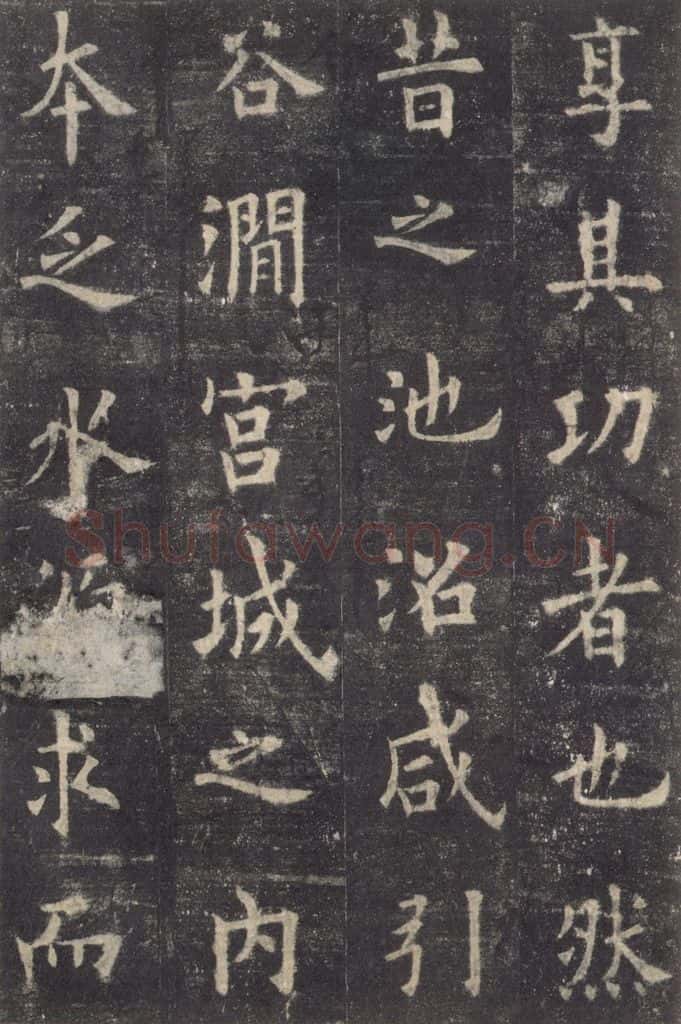 享其功者也然
昔之池沼咸引
谷澗宮城之内
本乏水求而
Shufawang.CN